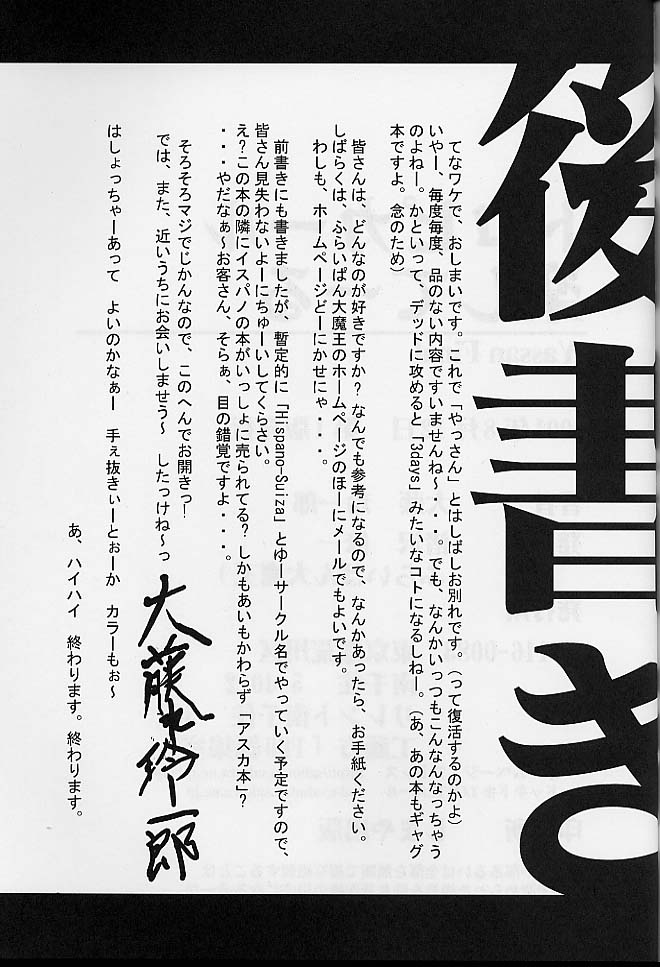 後書き
てなワケで、おしまいです。これで「やっさん」とはしばしお別れです。(って復活するのかよ)
いやー、毎度毎度、品のない内容ですいませんね～・・・。でも、なんかいっつもこんなんなっちゃう
のよねー。かといって、デッドに攻めると「3days」みたいなコトになるしねー。(あ、あの本もギャグ
本ですよ。念のため)
皆さんは、どんなのが好きですか?なんでも参考になるので、なんかあったら、お手紙ください。
しばらくは、ふらいぱん大魔王のホームページのほーにメールでもよいです。
わしも、ホームページどーにかせにゃ・・・。
前書きにも書きましたが、暫定的に「Hispano-Suiza」とゆーサークル名でやっていく予定ですので、
皆さん見失わないよーにちゅーいしてくらさい。
え?この本の隣にイスパノの本がいっしょに売られてる?しかもあいもかわらず「アスカ本」?
・・・やだなぁ～お客さん、そらぁ、目の錯覚ですよ・・・。
そろそろマジでじかんなので、このへんでお開きっ!
では、また、近いうちにお会いしませう～ したっけね～っ
大藤玲一郎
はしょっちゃーあって よいのかなぁー 手ぇ抜きぃーとぉーか カラーもぉ～
あ、ハイハイ 終わります。終わります。